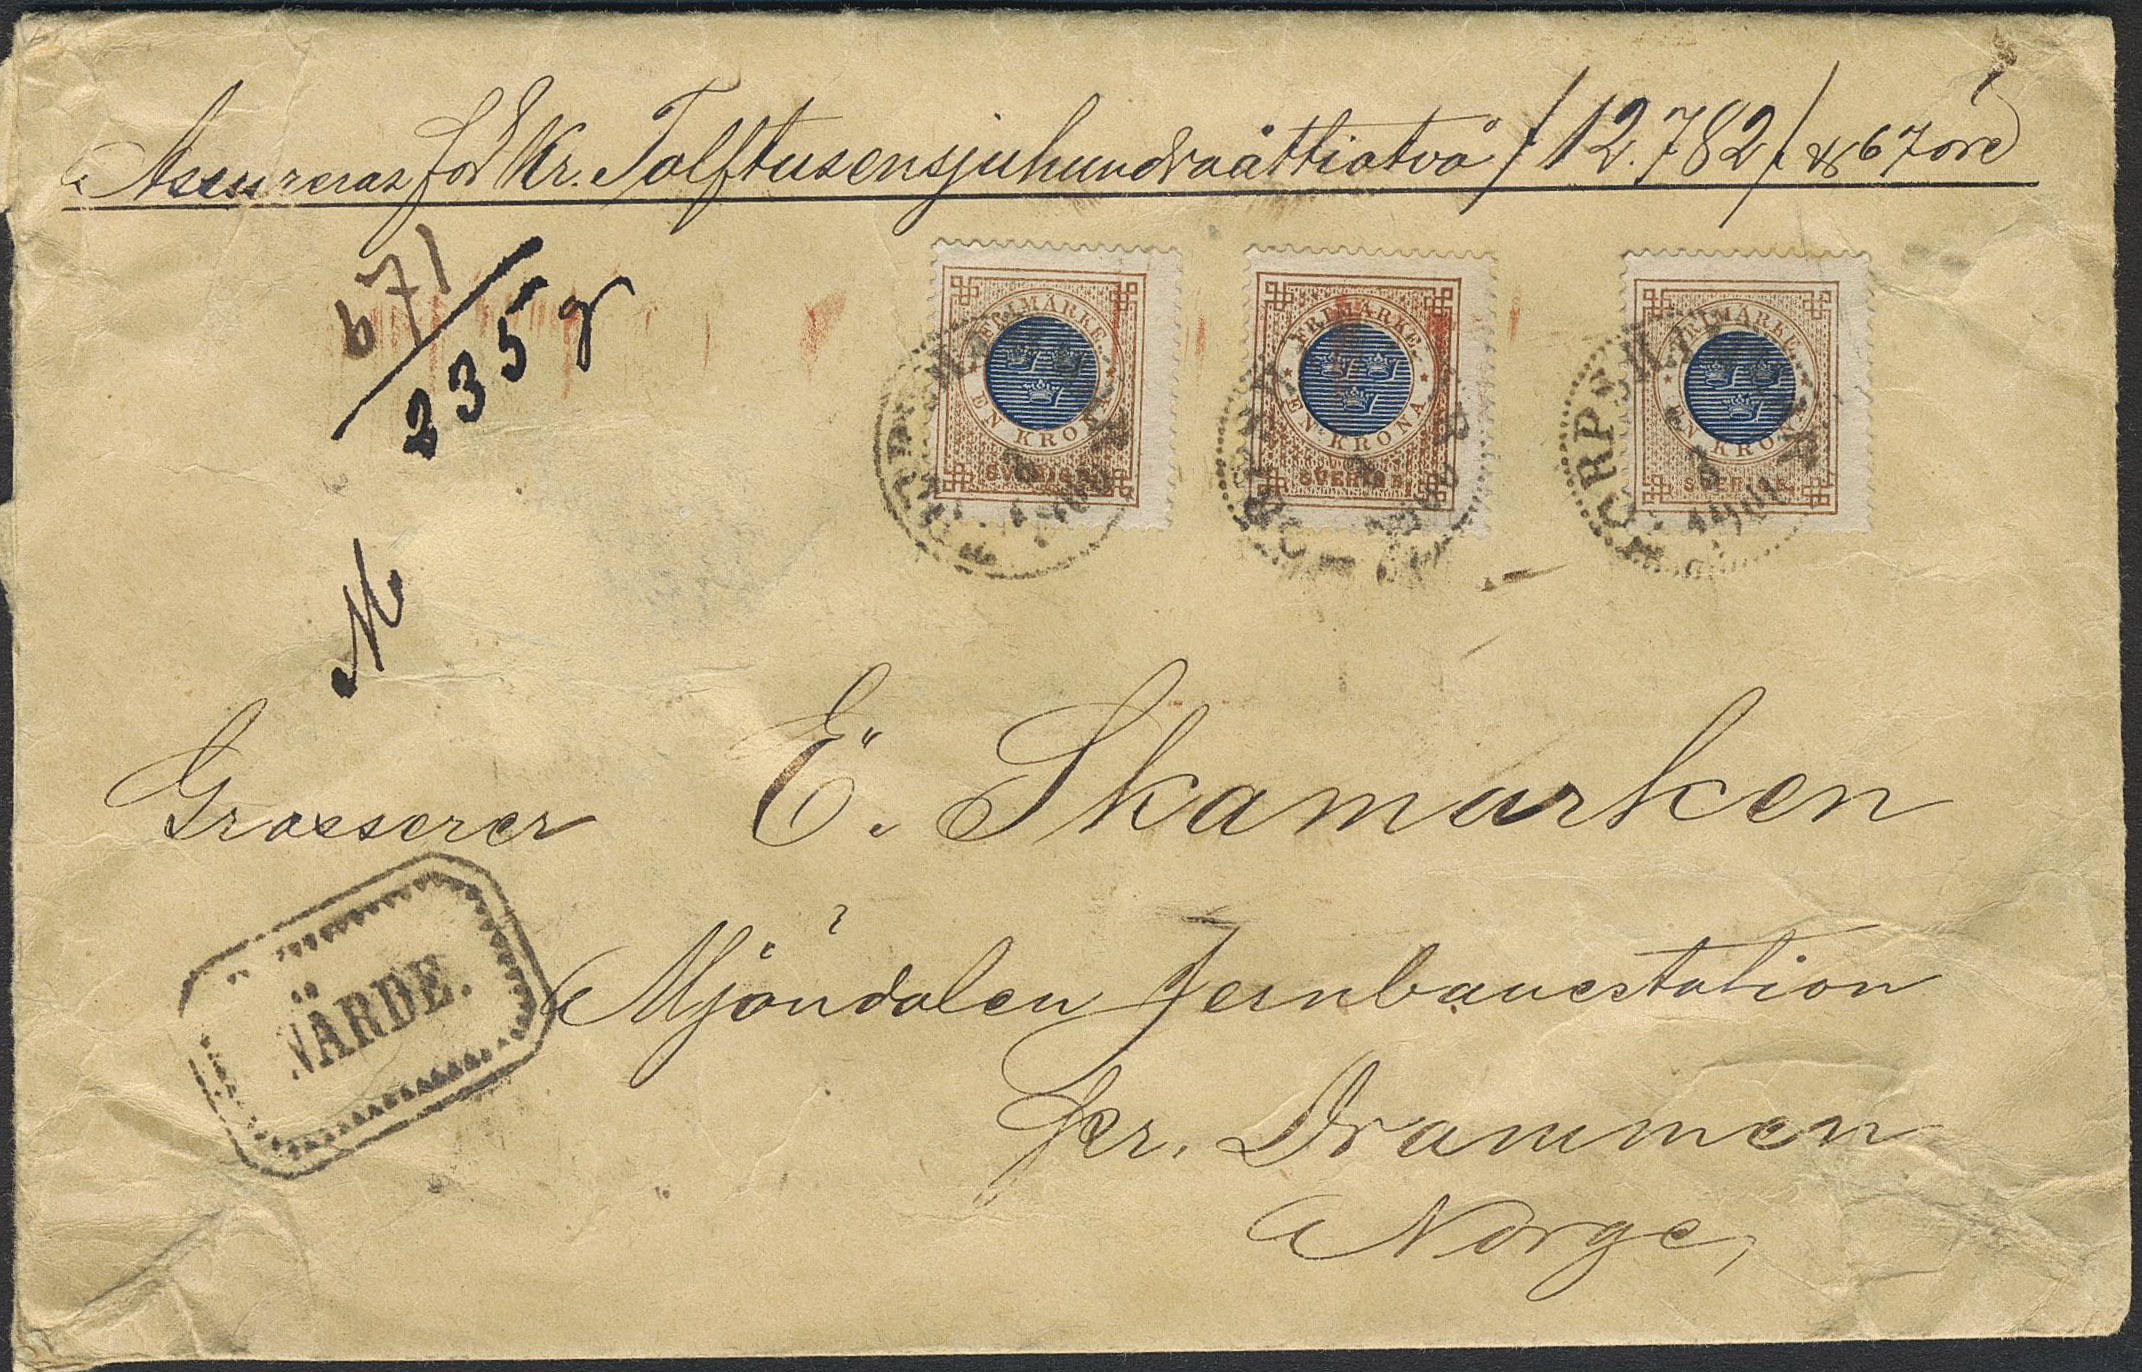 Assureras för Kr. Tolftusensjuhundraåttiotvå /12.782/ & 67 öre
671
235 g
M
FRIMÄRKE
EN KRONA
SVERIGE
FRIMÄRKE
EN KRONA
SVERIGE
FRIMÄRKE
EN KRONA
SVERIGE
Grosserer E. Skamarken
NÄRDE.
Mjöndalen Jernbanestation
pr. Drammen
Norge,